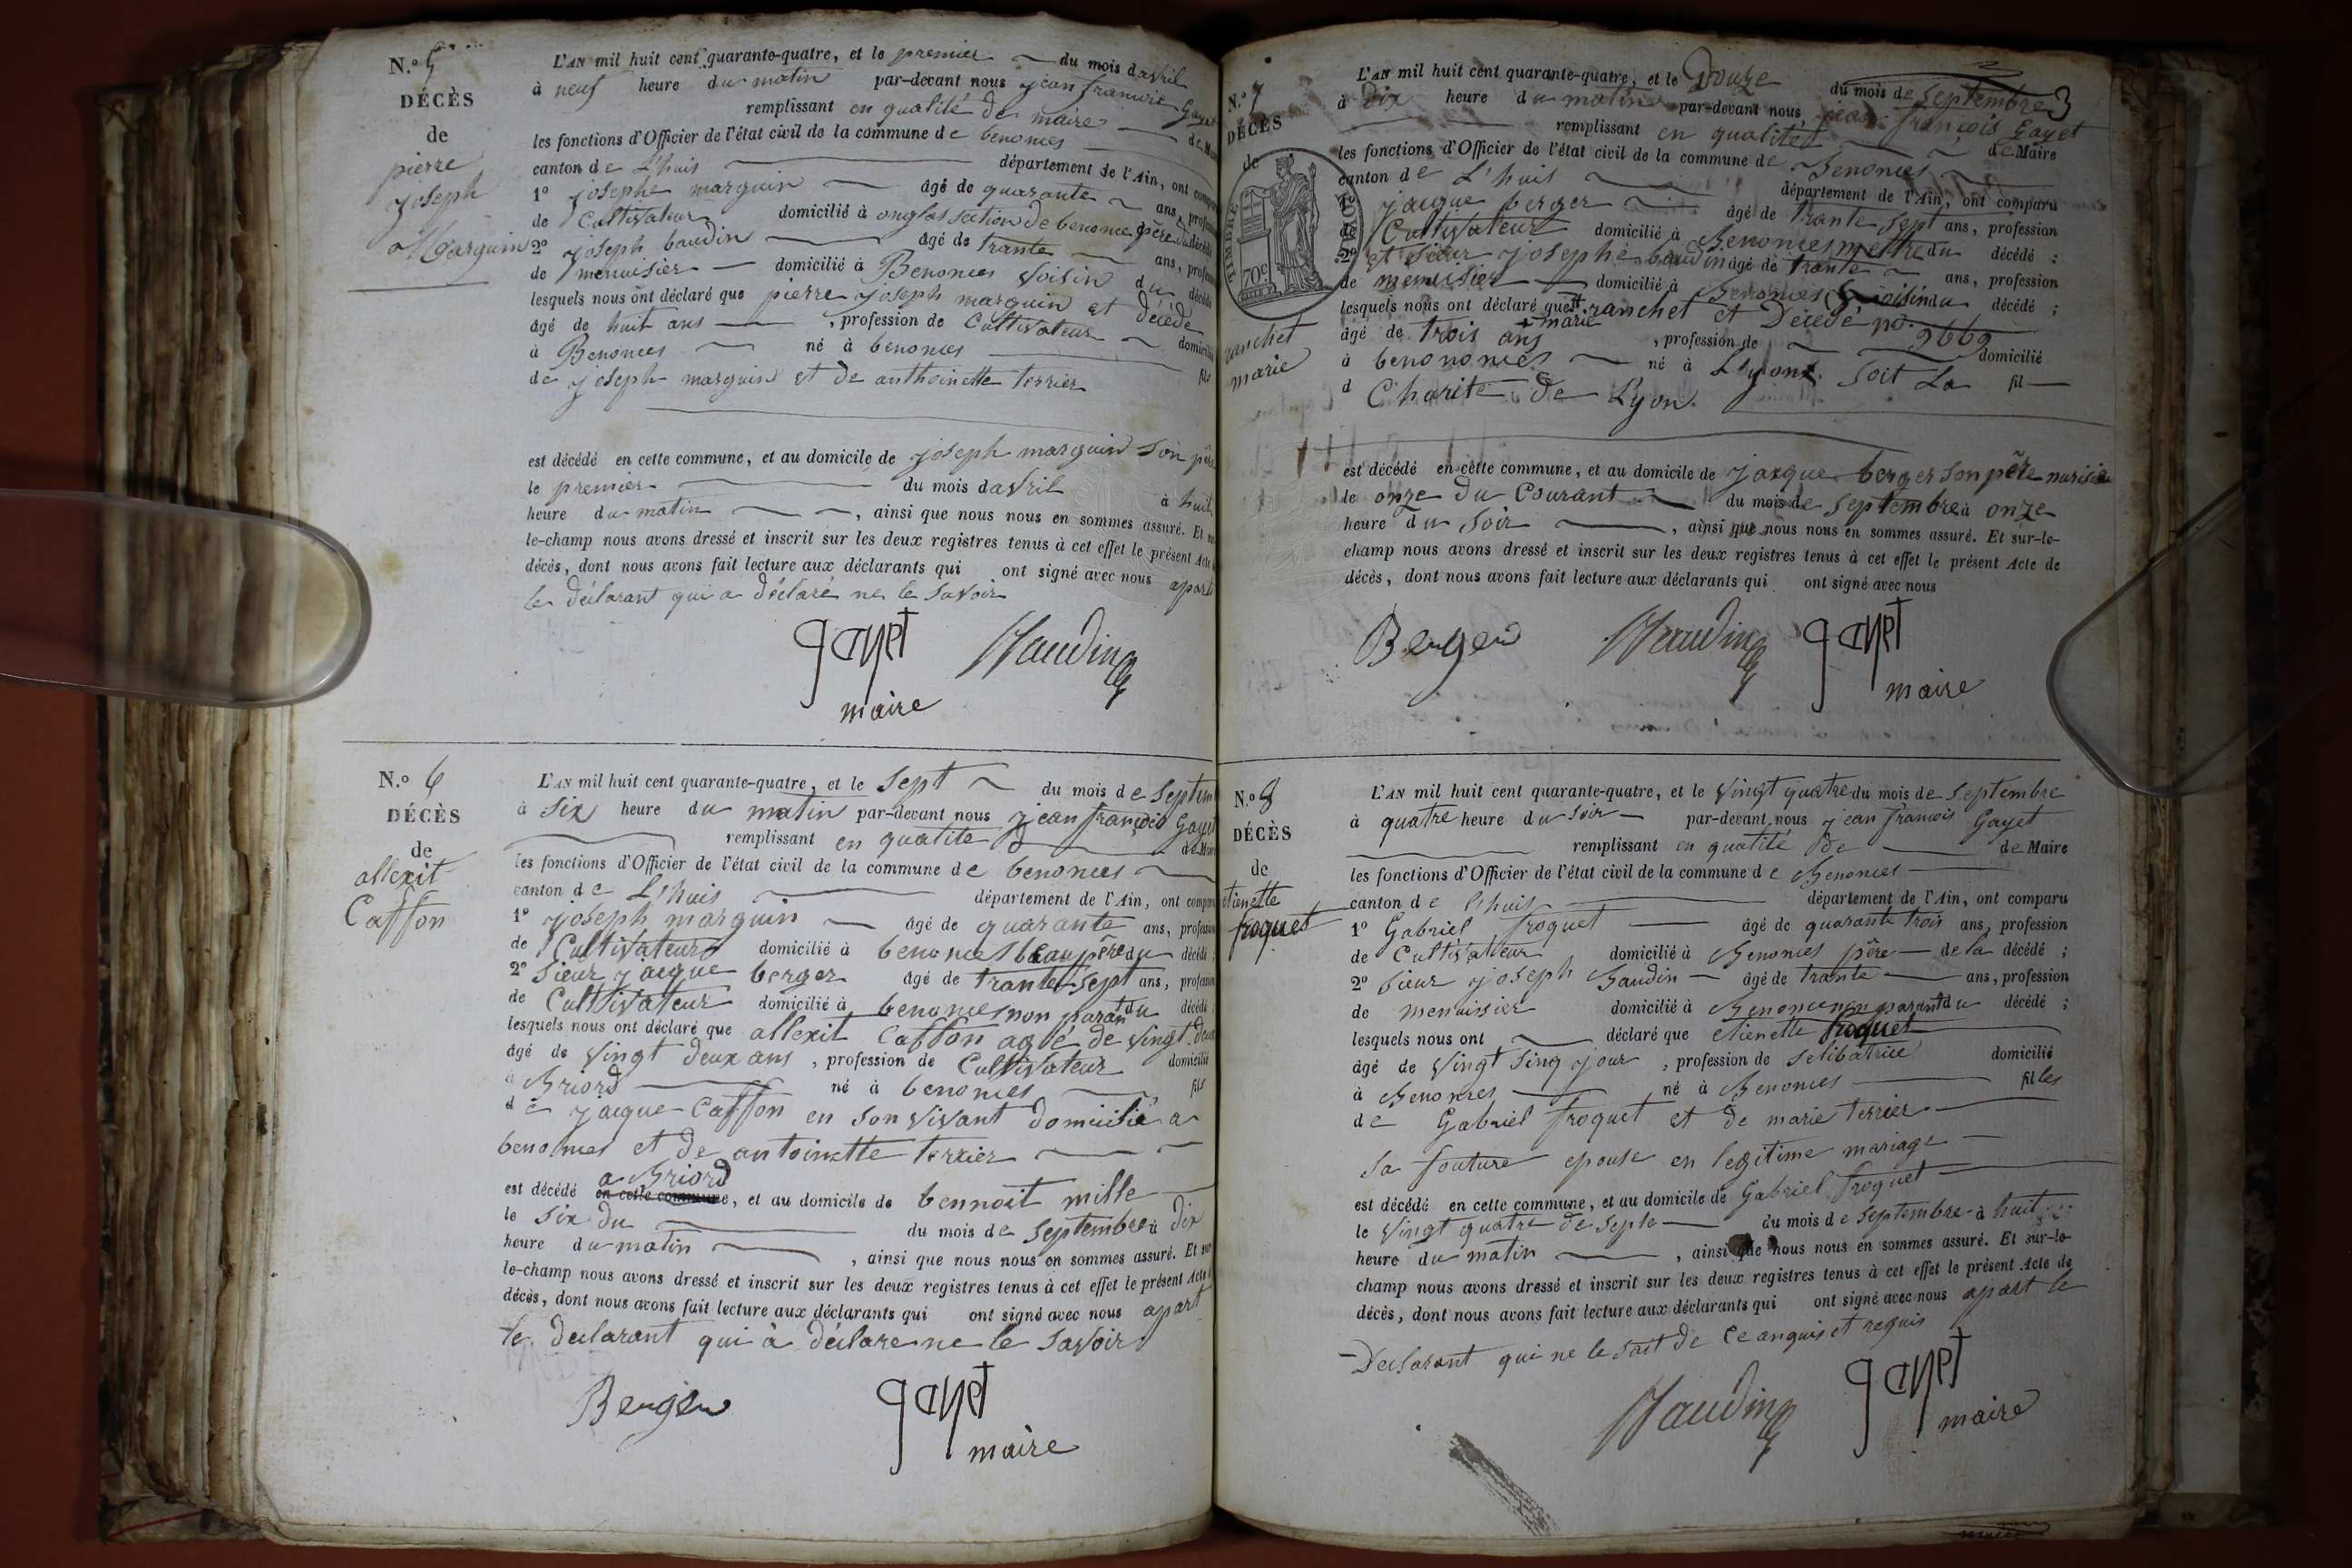 N.º 5
DÉCÈS
de
pierre
joseph
Marguin
L'AN mil huit cent quarante-quatre, et le premier du mois d'avril
à neuf heure du matin par-devant nous jean francois Gayet
remplissant en qualité de maire de Mai
les fonctions d'Officier de l'état civil de la commune de benonces
canton de L'huis département de l'Ain, ont compa
1º josephe marguin âgé de quarante ans, profes
de Cultivateur domicilié à onglas section de benonce père du décédé
2º joseph baudin âgé de trante ans, profes
de menuisier domicilié à Benonces voisin du décédé
lesquels nous ont déclaré que pierre joseph marguin et décède
âgé de huit ans, profession de Cultivateur domicilié
à Benonces né à benonces fils
de joseph marguin et de anthoinette terrier
est décédé en cette commune, et au domicile de joseph marguin son père
le premier du mois d'avril à huit
heure du matin, ainsi que nous nous en sommes assuré. Et su
le-champ nous avons dressé et inscrit sur les deux registres tenus à cet effet le présent Acte
décès, dont nous avons fait lecture aux déclarants qui ont signé avec nous apart
le déclarant qui a déclaré ne le savoir
gayet Baudin
maire
N.º 6
DÉCÈS
de
allexit
Caffon
L'AN mil huit cent quarante-quatre, et le sept du mois de septem
à six heure du matin par-devant nous jean françois Gayet
remplissant en qualité d de Mair
les fonctions d'Officier de l'état civil de la commune de benonces
canton de L'huis département de l'Ain, ont compa
1º joseph marguin âgé de quarante ans, profession
de Cultivateur domicilié à benonces beaupère du décédé
2º sieur jacque berger âgé de trante sept ans, profession
de Cultivateur domicilié à benonces non parant du décédé
lesquels nous ont déclaré que allexit Caffon agé de vingt deux
âgé de vingt deux ans, profession de Cultivateur domicilié
à Briord né à benonces fils
de jacque Caffon en son vivant domicilié a
benonces et de antoinette terrier
a Briord
est décédé en cette commune, et au domicile de bennoit mille
le six du du mois de septembre à dix
heure du matin, ainsi que nous nous en sommes assuré. Et sur
le-champ nous avons dressé et inscrit sur les deux registres tenus à cet effet le présent Acte
décès, dont nous avons fait lecture aux déclarants qui ont signé avec nous apart
le declarant qui à déclare ne le savoir
Berger gayet
maire
N.º 7
DÉCÈS
de
ranchet
marie
TIMBRE ROYAL
70c
L'AN mil huit cent quarante-quatre, et le Douze du mois de septembre
à Dix heure du matin par-devant nous jean françois Gayet
remplissant en qualité de Maire
les fonctions d'Officier de l'état civil de la commune de Benonces
canton de L'huis département de l'Ain, ont comparu
jacque berger âgé de trante sept ans, profession
de Cultivateur domicilié à Benonces mettre du décédé ;
2º et sieur josephe baudin âgé de trante ans, profession
de menuisier domicilié à Benonces voisin du décédé ;
lesquels nous ont déclaré que franchet et Décedé no. 9669
marie
âgé de trois ans, profession de domicilié
à benononces né à L'lyont. soit La fil
d Charité de Lyon.
est décédé en cette commune, et au domicile de jacque berger son père nurisier
le onze du Courant du mois de septembre à onze
heure du soir, ainsi que nous nous en sommes assuré. Et sur-le-
champ nous avons dressé et inscrit sur les deux registres tenus à cet effet le présent Acte de
décès, dont nous avons fait lecture aux déclarants qui ont signé avec nous
Berger Baudin gayet
maire
N.º 8
DÉCÈS
de
etienette
froquet
L'AN mil huit cent quarante-quatre, et le vingt quatre du mois de septembre
à quatre heure du soir par-devant nous jean francois Gayet
remplissant en qualité de de Maire
les fonctions d'Officier de l'état civil de la commune de Benonces
canton de l'huis département de l'Ain, ont comparu
1º Gabriel froquet âgé de quarante trois ans, profession
de Cultivateur domicilié à Benonces père de la décédé ;
2º sieur joseph Baudin âgé de trante ans, profession
de menuisier domicilié à Benonce non parant du décédé ;
lesquels nous ont déclaré que etienette froquet
âgé de vingt sinq jour, profession de selibatrice domicilié
à Benonces né à Benonces filles
de Gabriel froquet et de marie terrier
sa fouture epouse en legitime mariage
est décédé en cette commune, et au domicile de Gabriel froquet
le vingt quatre de septe du mois de septembre à huit
heure du matin, ainsi que nous nous en sommes assuré. Et sur-le-
champ nous avons dressé et inscrit sur les deux registres tenus à cet effet le présent Acte de
décès, dont nous avons fait lecture aux déclarants qui ont signé avec nous apart le
Declarant qui ne le sait de ce anquis et requis
Baudin gayet
maire